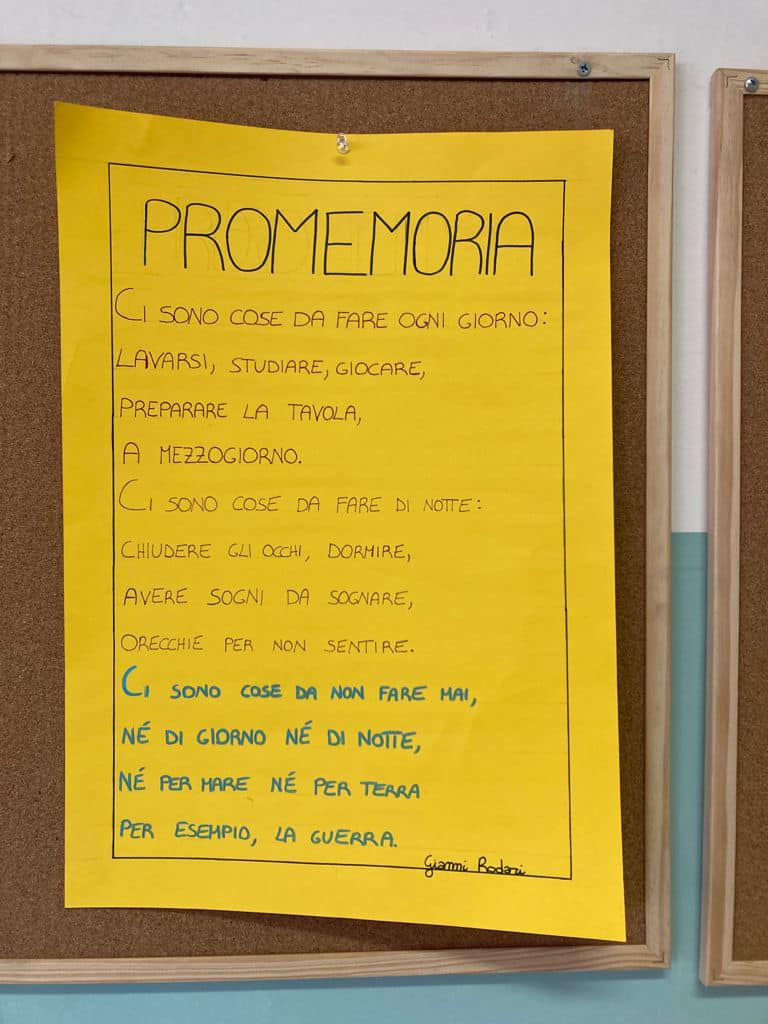 PROMEMORIA
CI SONO COSE DA FARE OGNI GIORNO:
LAVARSI, STUDIARE, GIOCARE,
PREPARARE LA TAVOLA,
A MEZZOGIORNO.
CI SONO COSE DA FARE DI NOTTE:
CHIUDERE GLI OCCHI, DORMIRE,
AVERE SOGNI DA SOGNARE,
ORECCHIE PER NON SENTIRE.
CI SONO COSE DA NON FARE MAI,
NÉ DI GIORNO NÉ DI NOTTE,
NÉ PER MARE NÉ PER TERRA
PER ESEMPIO, LA GUERRA.
Gianni Rodari